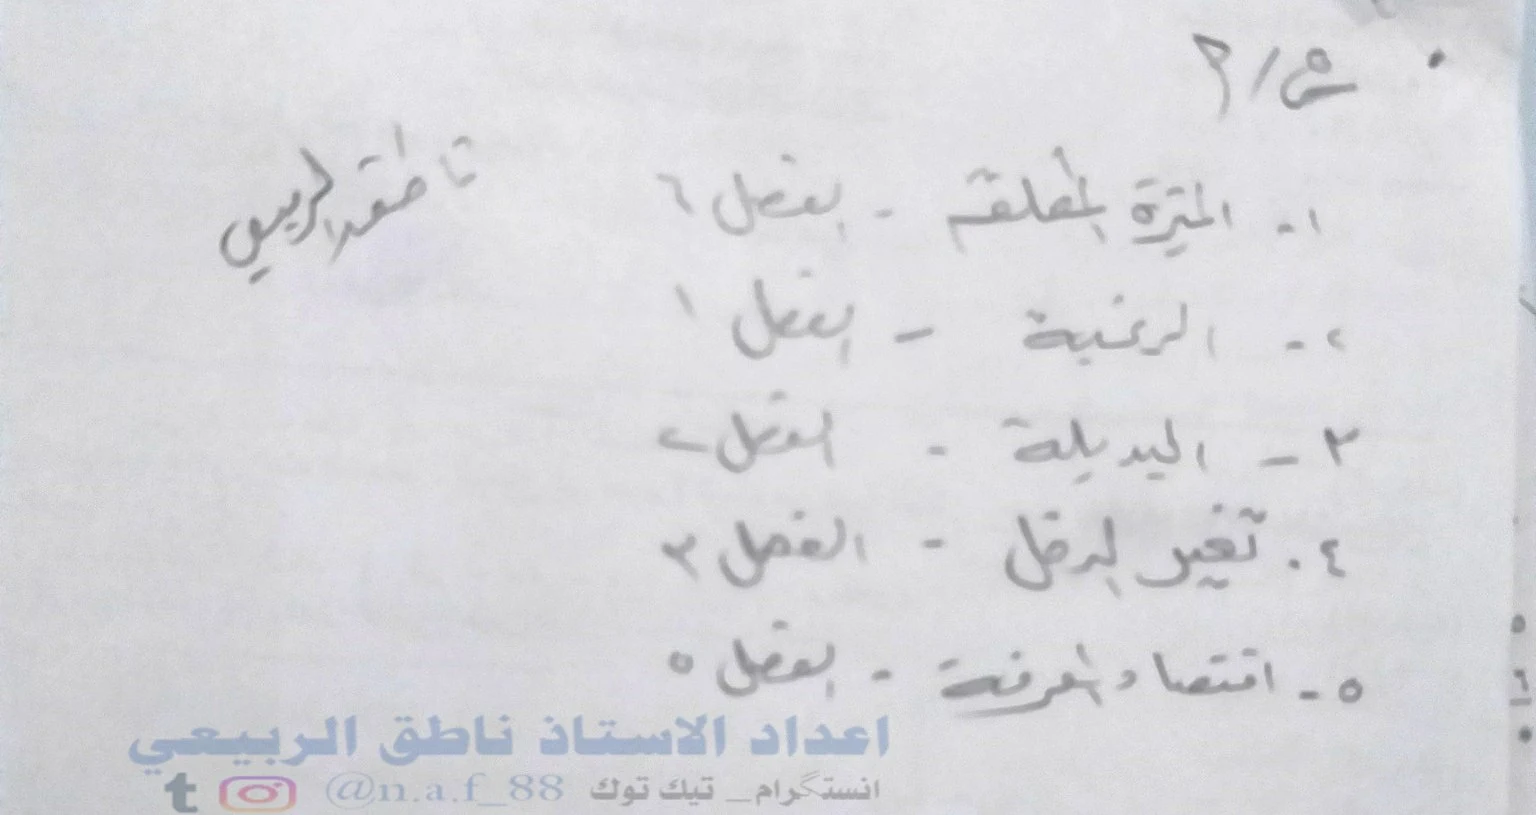 س/٢
ناطق الربيعي
١- الميزة المطلقة - الفصل ٦
٢- الرغبة - الفصل ١
٣- البديلة - الفصل ٢
٤. تغير الدخل - الفصل ٣
٥- اقتصاد المعرفة - الفصل ٥
اعداد الاستاذ ناطق الربيعي
انستگرام_ تيك توك @n.a.f_88
t